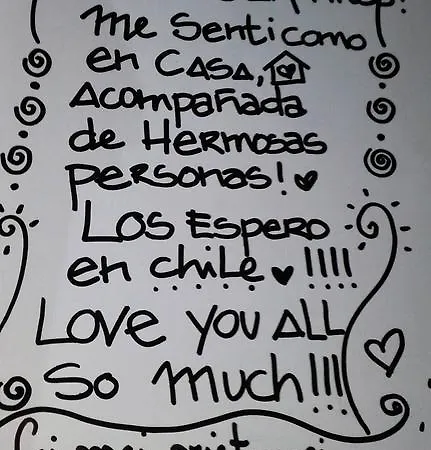 me Senti como
en CASA,
Acompañada
de Hermosas
personas!
Los Espero
en chile !!!!
Love you All
So much!!!!